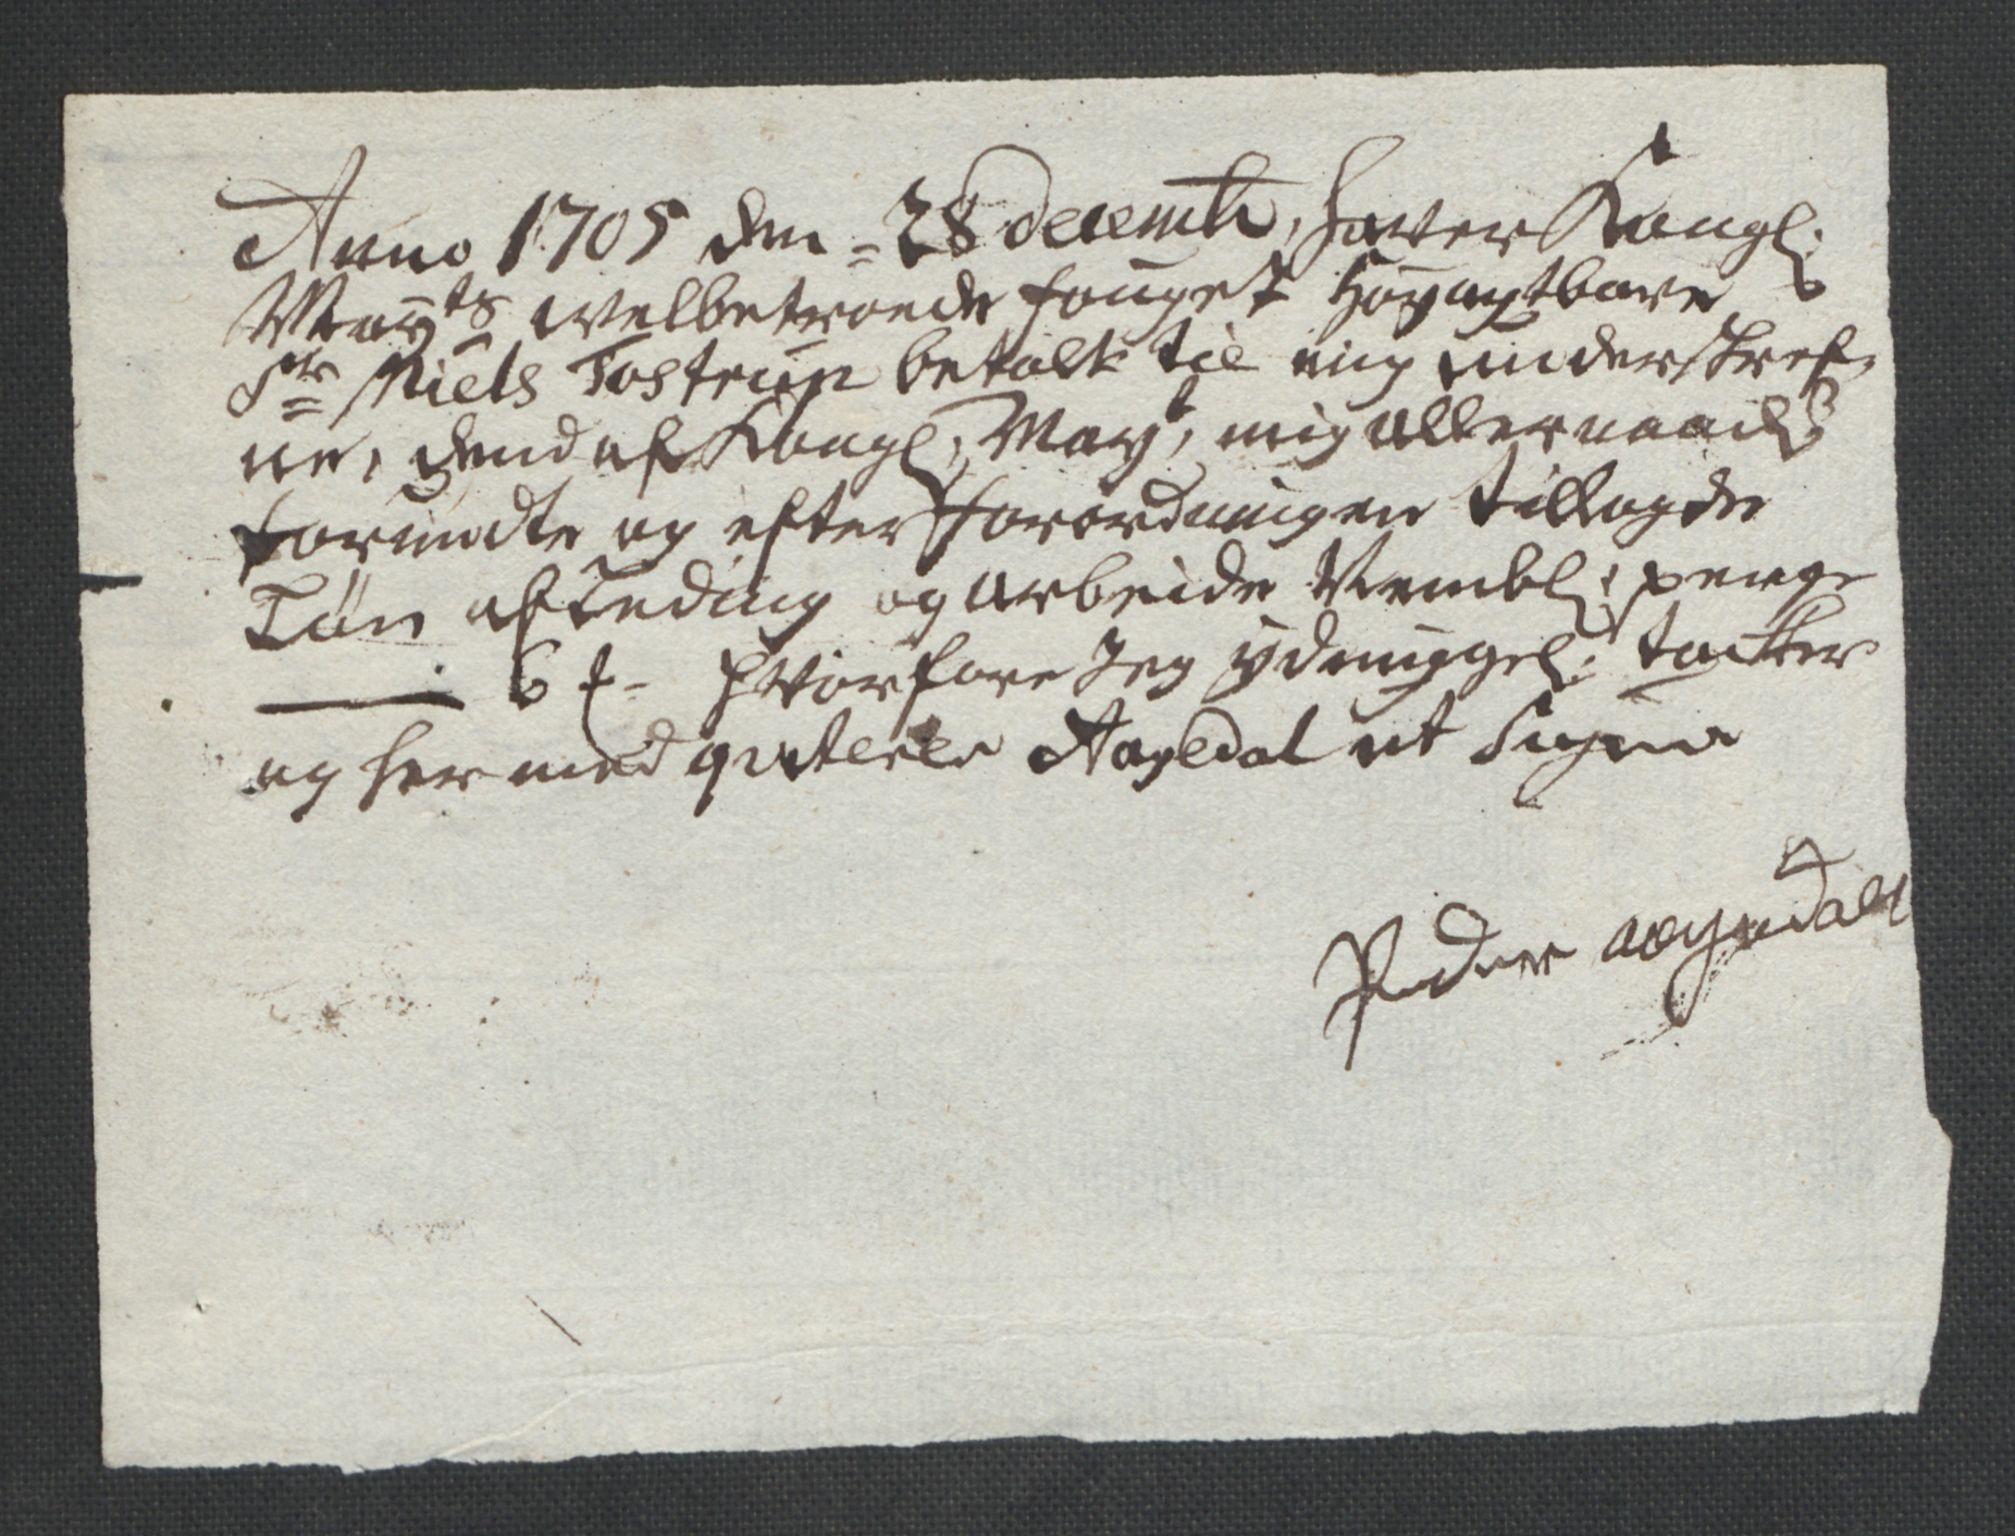 Anno 1705 den = 28 decemb, hawer Kongl:
May.ts welbetroede fouget Høyagtbare
Sr Niels Tostrup betalt til mig underskref-
ne, dend af Kongl: May.t, mig allernaadl:
forundte og efter forordningen tillagde
Løn af Leding og arbeide penge
6 hvorfore Jeg ydmyggel: tacker
og hermed qviterer Aagedal ut Supra
Peder aagedal